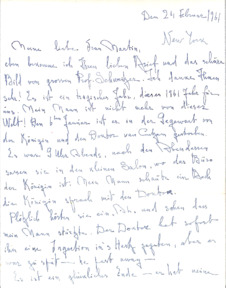 Den 24 Februar/1961
New York
Meine liebe Frau Martin,
eben bekomme ich Ihren lieben Brief und das schöne
Bild vom grossen Prof. Ich danke Ihnen
sehr! Es ist ein tragisches Jahr, dieses 1961 Jahr für
uns. Mein Mann ist nicht mehr von dieser
Welt! Den Januar ist er in der Gegenwart von
der Königin und den Doctor von
Es war 9 Uhr Abends, nach den
waren sie in den kleinen Salon, wo das Büro
der Königin ist. Mein Mann
die Königin sprach mit den Doctor.
Plötzlich hörten sie ein Ach, und sahen das
mein Mann stürzte. Der Doctor hat sofort
ihm eine Injection in's Herz gegeben, aber es
war zu spät
Es ist ein Ende er hat meine